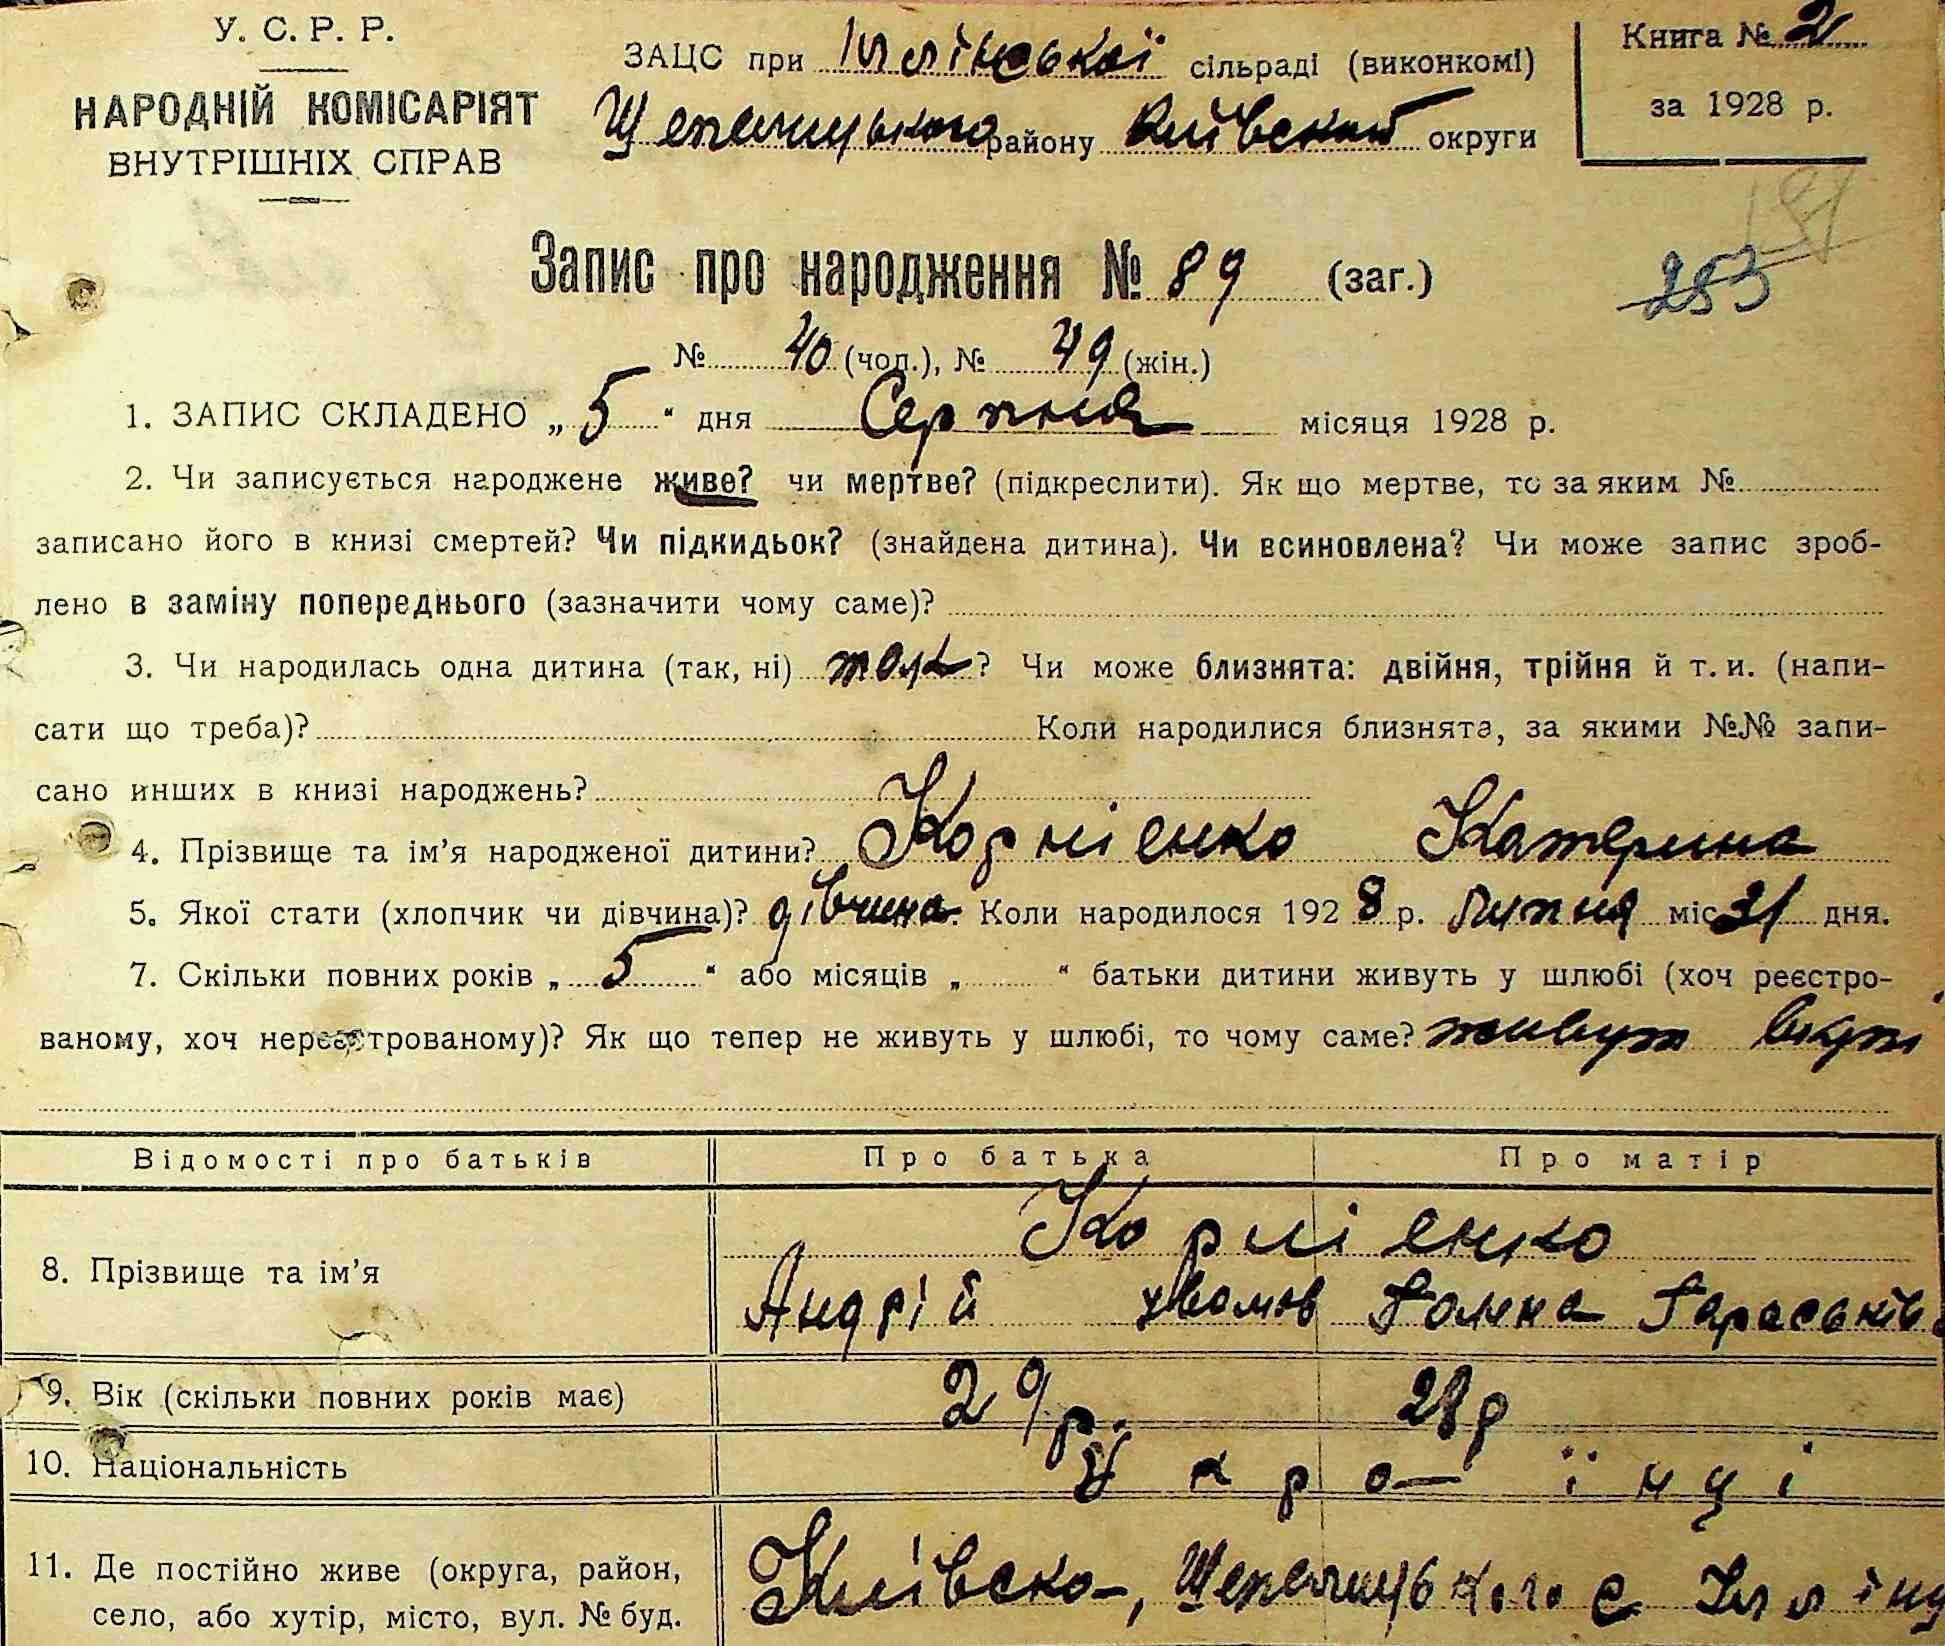 У. С. Р. Р.
НАРОДНІЙ КОМІСАРІЯТ
ВНУТРІШНІХ СПРАВ
ЗАЦС при Іллінській сільраді (виконкомі)
Шепелицького району Київської округи
Книга № 2
за 1928 р.
Запис про народження № 89 (заг.)
253
№ 40 (чол.), № 49 (жін.)
1. ЗАПИС СКЛАДЕНО „ 5 “ дня Серпня місяця 1928 р.
2. Чи записується народжене живе? чи мертве? (підкреслити). Як що мертве, то за яким №
записано його в книзі смертей? Чи підкидьок? (знайдена дитина). Чи всиновлена? Чи може запис зроб-
лено в заміну попереднього (зазначити чому саме)?
3. Чи народилась одна дитина (так, ні) так? Чи може близнята: двійня, трійня й т. и. (напи-
сати що треба)? Коли народилися близнята, за якими №№ запи-
сано инших в книзі народжень?
4. Прізвище та ім'я народженої дитини? Корнієнко Катерина
5. Якої стати (хлопчик чи дівчина)? дівчина. Коли народилося 1928 р. Липня міс 31 дня.
7. Скільки повних років „ 5 “ або місяців „ “ батьки дитини живуть у шлюбі (хоч реєстро-
ваному, хоч нереєстрованому)? Як що тепер не живуть у шлюбі, то чому саме? живут вкупі
Відомості про батьків Про батька Про матір
Корнієнко
8. Прізвище та ім'я
Андрій
9. Вік (скільки повних років має) 29 р. 28 р
10. Національність Украïнці
11. Де постійно живе (округа, район,
село, або хутір, місто, вул. № буд.
Київска, Шепелицьк. с